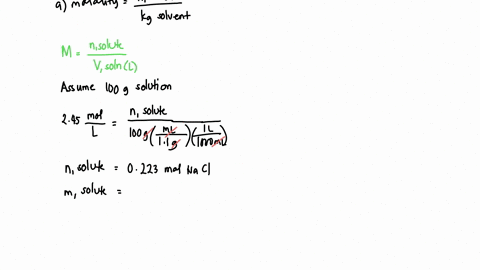 a) molality = n, solute / kg solvent
M = n, solute / V, soln (L)
Assume 100 g solution
2.45 mol/L = n, solute / 100g (mL/1.1g) (1L/1000mL)
n, solute = 0.223 mol NaCl
m, solute =